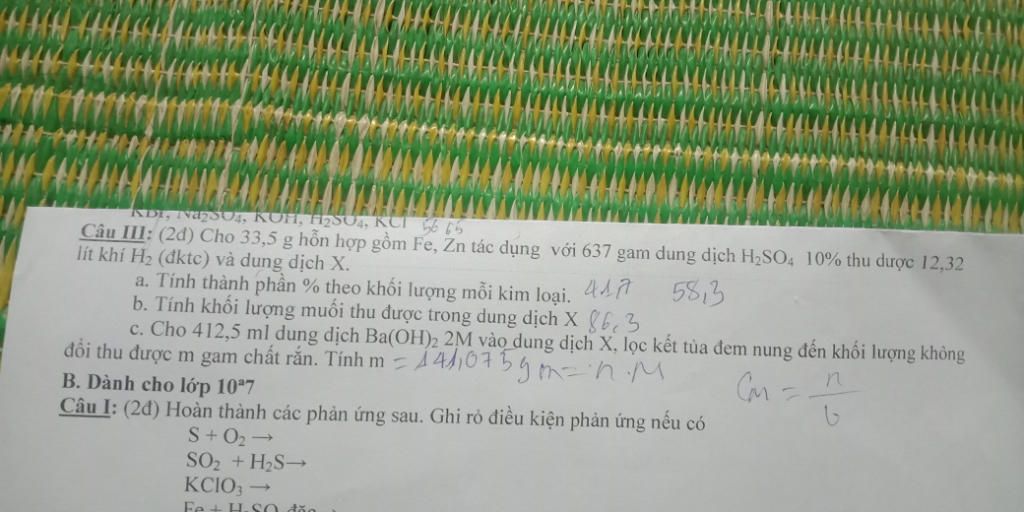 KBr, Na₂SO₄, KOH, H₂SO₄, KCl 56 65
Câu III: (2đ) Cho 33,5 g hỗn hợp gồm Fe, Zn tác dụng với 637 gam dung dịch H₂SO₄ 10% thu dược 12,32
lít khí H₂ (đktc) và dung dịch X.
a. Tính thành phần % theo khối lượng mỗi kim loại. 41,7 58,3
b. Tính khối lượng muối thu được trong dung dịch X 86,3
c. Cho 412,5 ml dung dịch Ba(OH)₂ 2M vào dung dịch X, lọc kết tủa đem nung đến khối lượng không
đổi thu được m gam chất rắn. Tính m = 141,075g m = n.M
Cm = n
B. Dành cho lớp 10ª7
Câu I: (2đ) Hoàn thành các phản ứng sau. Ghi rỏ điều kiện phản ứng nếu có
S + O₂ →
SO₂ + H₂S→
KClO₃ →
Fe + H₂SO₄ đặc